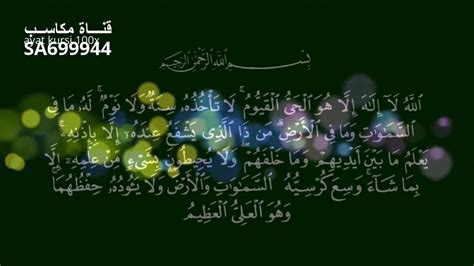 قناة مكاسب
ayat kursi 100x
SA699944
بِسْمِ اللَّهِ الرَّحْمَٰنِ الرَّحِيمِ
اللَّهُ لَا إِلَٰهَ إِلَّا هُوَ الْحَيُّ الْقَيُّومُ ۚ لَا تَأْخُذُهُ سِنَةٌ وَلَا نَوْمٌ ۚ لَهُ مَا فِي
السَّمَاوَاتِ وَمَا فِي الْأَرْضِ ۗ مَن ذَا الَّذِي يَشْفَعُ عِندَهُ إِلَّا بِإِذْنِهِ ۚ
يَعْلَمُ مَا بَيْنَ أَيْدِيهِمْ وَمَا خَلْفَهُمْ ۖ وَلَا يُحِيطُونَ بِشَيْءٍ مِّنْ عِلْمِهِ إِلَّا
بِمَا شَاءَ ۚ وَسِعَ كُرْسِيُّهُ السَّمَاوَاتِ وَالْأَرْضَ ۖ وَلَا يَئُودُهُ حِفْظُهُمَا ۚ
وَهُوَ الْعَلِيُّ الْعَظِيمُ